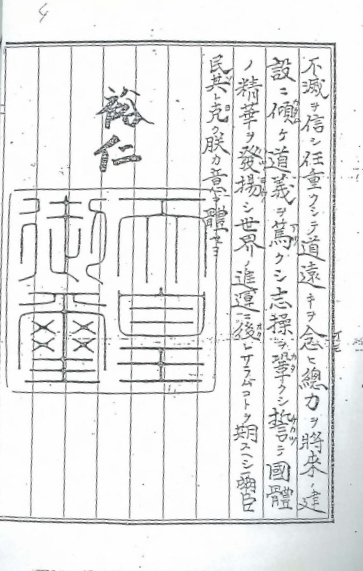 不滅ヲ信シ任重クシテ道遠キヲ念ヒ總力ヲ將來ノ建
設ニ傾ケ道義ヲ篤クシ志操ヲ鞏クシ誓テ國體
ノ精華ヲ發揚シ世界ノ進運ニ後レサラムコトヲ期スヘシ爾臣
民其レ克ク朕カ意ヲ體セヨ
裕仁
天皇
御璽